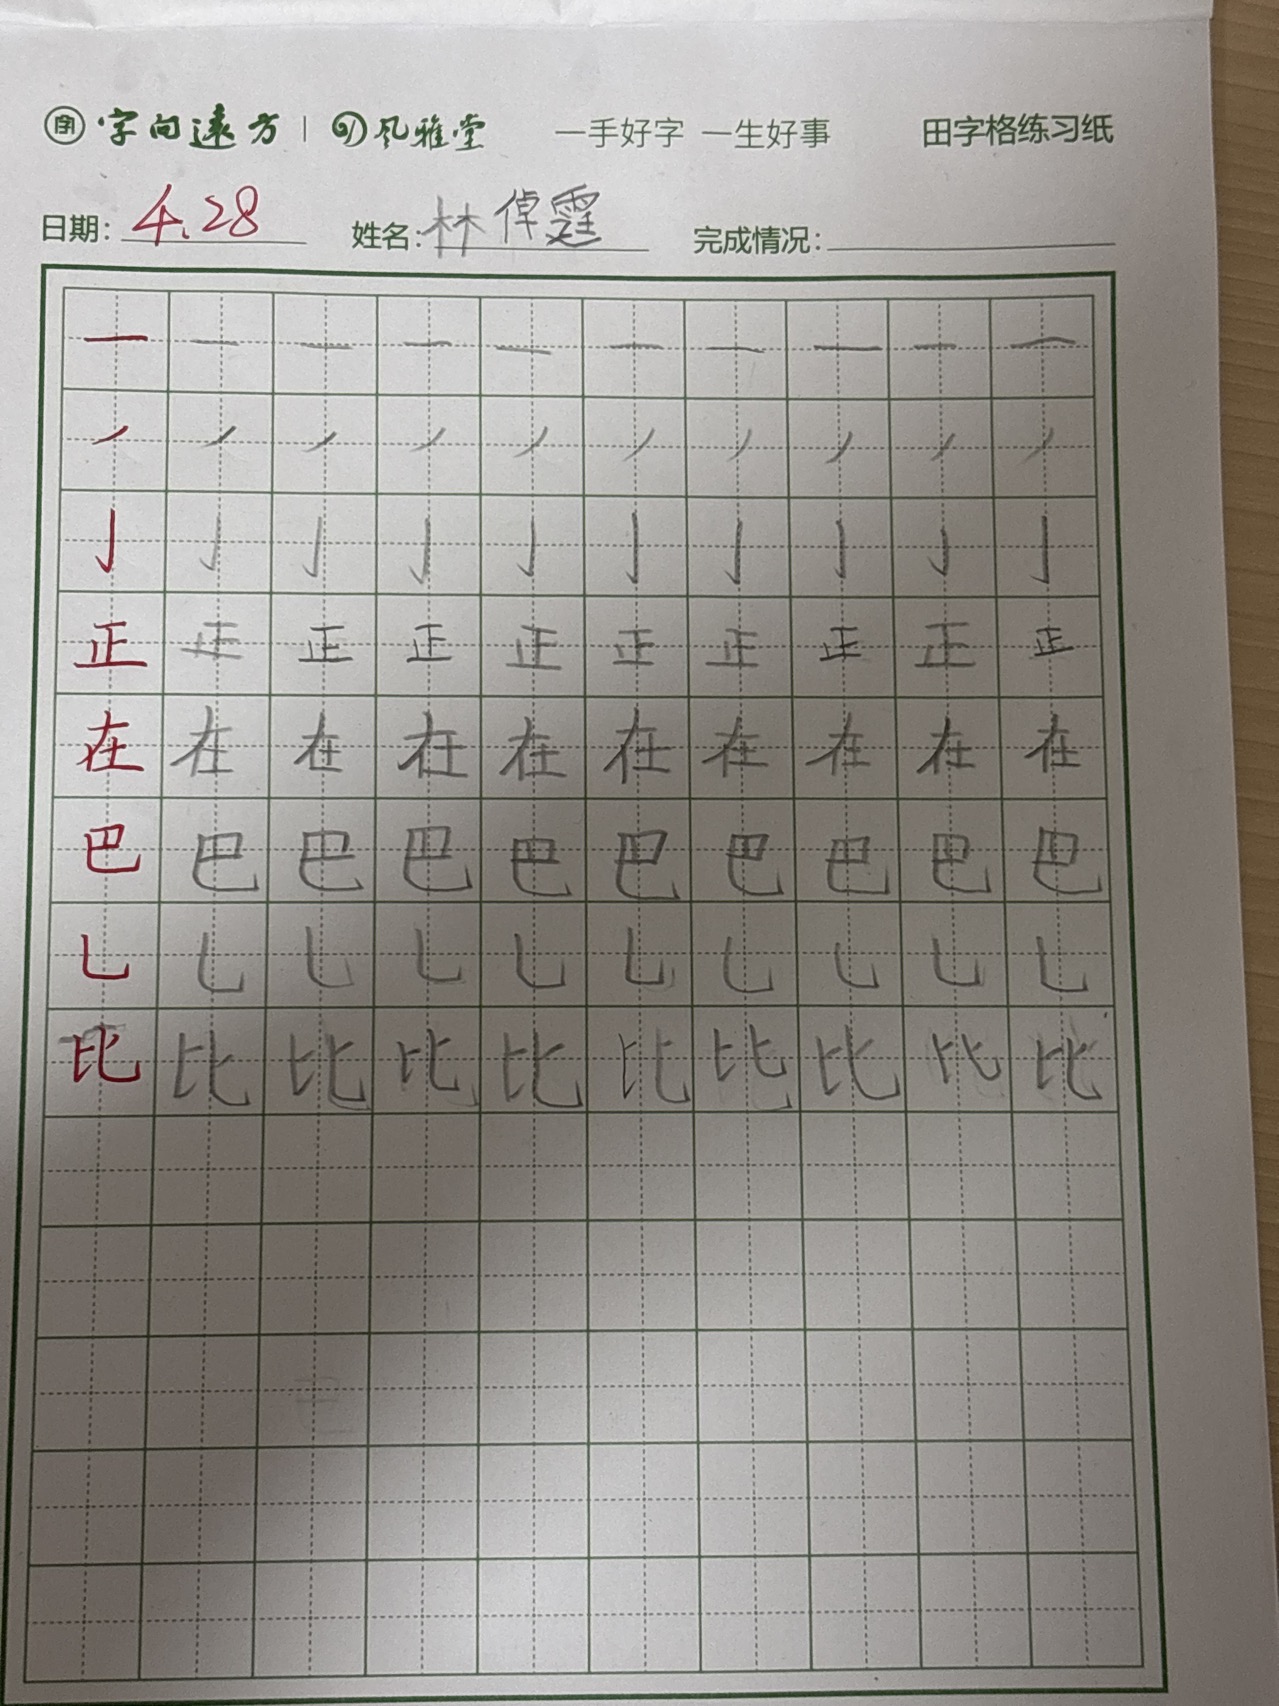 字向远方 | 风雅堂 一手好字 一生好事 田字格练习纸
日期: 4.28 姓名: 林倬霆 完成情况:
一 一 一 一 一 一 一 一 一 一
丿 丿 丿 丿 丿 丿 丿 丿 丿 丿
亅 亅 亅 亅 亅 亅 亅 亅 亅 亅
正 正 正 正 正 正 正 正 正 正
在 在 在 在 在 在 在 在 在 在
巴 巴 巴 巴 巴 巴 巴 巴 巴 巴
乚 乚 乚 乚 乚 乚 乚 乚 乚 乚
比 比 比 比 比 比 比 比 比 比